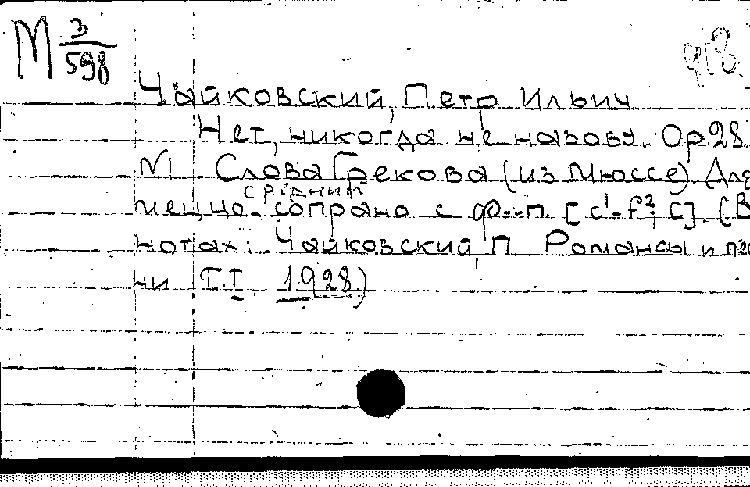 М 3/598
Чайковский, Петр Ильич
Нет, никогда не назову. Op 28
N1 Слова Грекова (из Мюссе). Для
средний
меццо-сопрано с ф-п [c¹-f², c]. (В
нотах: Чайковский, П Романсы и пес
ни Т.I. 1928.)